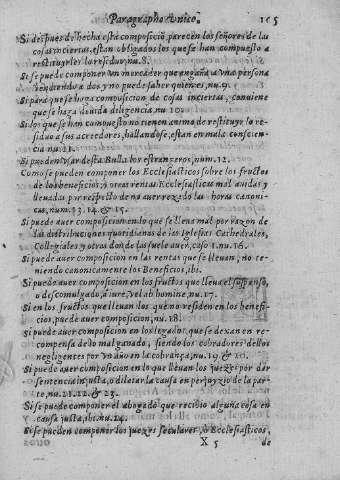 Paragrapho vnico. 165
Si despues de hecha esta composiciō, parecen los señores de las
cosas inciertas, estan obligados los que se han compuesto a
restituyrles la residuo, nu. 8.
Si se puede componer vn mercader que engaña a vna persona
vendiendo a dos y no puede saber quien es, nu. 9.
Si para que se haga composicion de cosas inciertas, conuiene
que se haga deuida diligencia. nu. 10.
Si los que se han compuesto no tienen animo de restituyr la re-
siduo a sus acreedores, hallandose, estan en mala conscien-
cia nu. 11.
Si pueden vsar desta Bulla los estrangeros, num. 12.
Como se pueden componer los Ecclesiasticos sobre los fructos
de los beneficios, y otras rentas Ecclesiasticas mal auidas y
lleuadas por respecto de no auer rezado las horas canoni-
cas, num. 13. 14 & 15.
Si puede auer composicion en lo que se lleua mal por razon de
las distribuciones quotidianas de las Iglesias Cathedrales,
Collegiales y otras donde las suele auer, caso 1. nu. 16.
Si puede auer composicion en las rentas que se lleuan, no te-
niendo canonicamente los Beneficios, ibi.
Si puede auer composicion en los fructos que lleua el suspenso,
o descomulgado, à iure, vel ab homine, nu. 17.
Si en los fructos que lleuan los que no residen en los benefi-
cios, puede auer composicion, nu. 18.
Si puede auer composicion en los legados, que se dexan en re-
compensa de lo mal ganado, siendo los cobradores dellos
negligentes por vn año en la cobrança, nu. 19 & 20.
Si puede auer composicion en lo que lleuan los juezes por dar
sentencia injusta, o dilatar la causa en perjuyzio de la par-
te, nu. 21. 22. & 23.
Si se puede componer el abogado que recibio alguna cosa en
causa justa, ibi. nu. 24.
Si se pueden componer los juezes seculares, o Ecclesiasticos,
X 5 de